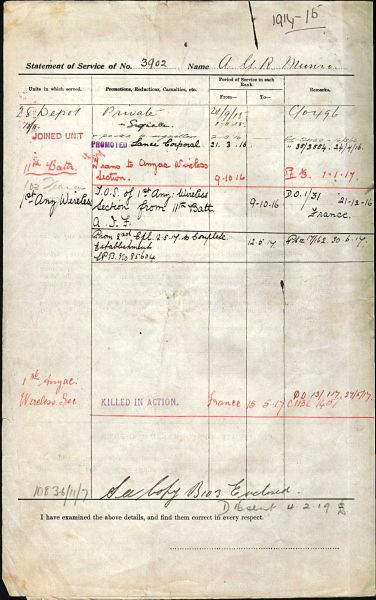 1914-15
Statement of Service of No. 3902 Name A G R Munro.
Units in which served.
Promotions, Reductions, Casualties, etc.
Period of Service in each Rank.
From—
To—
Remarks.
28 Depot Private
Signaller
JOINED UNIT
PROMOTED Lance Corporal 21.3.16
11th Battn Trans to Anzac Wireless
Section. 9-10-16 1-1-17
1st Anz Wireless T.O.S. of 1st Anz Wireless D.O. 1/31
Section from 11th Batt 9-10-16 21-12-16
A.I.F. France
Prom 2nd Cpl 12.5.17 to complete
Establishment 12 5 17 30.6.17
No 85604
1st Anzac
Wireless Sec KILLED IN ACTION. France 15 5-17 D.O. 13/117. 27/5/17
10836/11/7 See copy B103 Enclosed.
4-2-19
I have examined the above details, and find them correct in every respect.